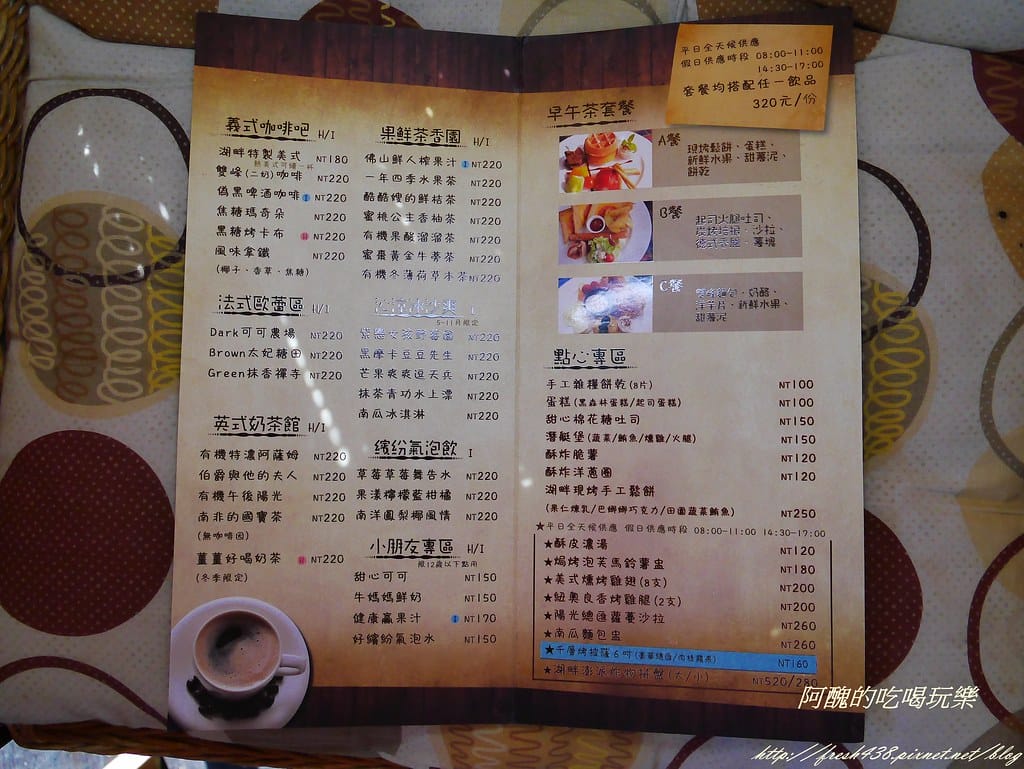 義式咖啡吧 H/I
湖畔特製美式 NT180
熱美式可續一杯
雙峰(二切)咖啡 NT220
偽黑啤酒咖啡 I NT220
焦糖瑪奇朵 NT220
黑糖烤卡布 H NT220
風味拿鐵 NT220
(椰子、香草、焦糖)
法式歐蕾區 H/I
Dark可可農場 NT220
Brown太妃糖田 NT220
Green抹香禪寺 NT220
英式奶茶館 H/I
有機特濃阿薩姆 NT220
伯爵與他的夫人 NT220
有機午後陽光 NT220
南非的國寶茶 NT220
(無咖啡因)
薑薑好喝奶茶 H NT220
(冬季限定)
果鮮茶香園 H/I
佛山鮮人榨果汁 I NT220
一年四季水果茶 NT220
酷酷嫂的鮮桔茶 NT220
蜜桃公主香柚茶 NT220
有機果酸溜溜茶 NT220
蜜棗黃金牛蒡茶 NT220
有機冬薄荷草本茶 NT220
5-11月限定
NT220
黑摩卡豆豆先生 NT220
芒果爽爽逗天兵 NT220
抹茶青功水上漂 NT220
南瓜冰淇淋 NT220
繽紛氣泡飲 I
草莓草莓舞告水 NT220
果漾檸檬藍柑橘 NT220
南洋鳳梨椰風情 NT220
小朋友專區 H/I
限12歲以下點用
甜心可可 NT150
牛媽媽鮮奶 NT150
健康贏果汁 I NT170
好繽紛氣泡水 NT150
平日全天候供應
假日供應時段 08:00-11:00
14:30-17:00
套餐均搭配任一飲品
320元/份
早午茶套餐
A餐
現烤鬆餅、蛋糕、
新鮮水果、甜薯泥、
餅乾
B餐
起司火腿吐司、
沙拉、
薯塊
C餐
奶酪、
洋芋片、新鮮水果、
甜薯泥
點心專區
手工雜糧餅乾(8片) NT100
蛋糕(黑森林蛋糕/起司蛋糕) NT100
甜心棉花糖吐司 NT150
潛艇堡(蔬菜/鮪魚/燻雞/火腿) NT150
酥炸脆薯 NT120
酥炸洋蔥圈 NT120
湖畔現烤手工鬆餅
(果仁煉乳/巴娜娜巧克力/田園蔬菜鮪魚) NT250
★平日全天候供應 假日供應時段 08:00-11:00 14:30-17:00
★酥皮濃湯 NT120
★焗烤泡芙馬鈴薯盅 NT180
★美式燻烤雞翅(8支) NT200
★紐奧良香烤雞腿(2支) NT200
★陽光總匯蘿蔓沙拉 NT260
★南瓜麵包盅 NT260
★千層烤披薩6吋 NT160
★湖畔澎派炸物拼盤(大/小) NT520/280
阿醜的吃喝玩樂
http://fresh438.pixnet.net/blog